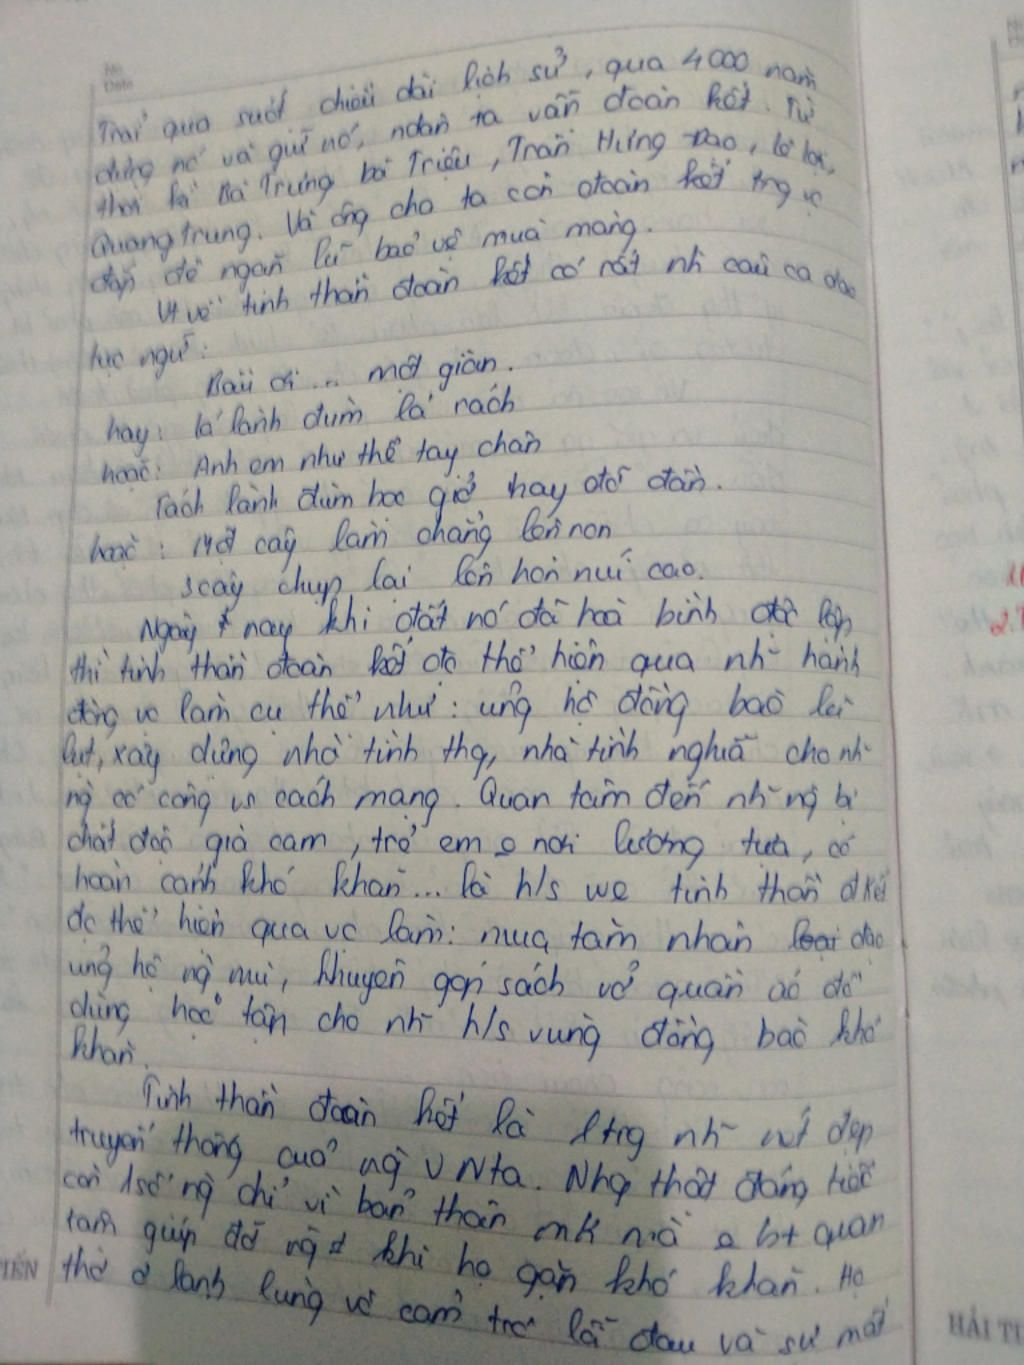 No
Date
Trải qua suốt chiều dài lịch sử, qua 4000 năm
dựng nc và giữ nc, ndân ta vẫn đoàn kết. Từ
thời kì Bà Trưng bà Triệu, Trần Hưng Đạo, lê lợi,
Quang trung. Và ông cha ta còn đoàn kết trg vc
đắp đê ngăn lũ bảo vệ mùa màng.
Vt về tinh thần đoàn kết có rất nh~ câu ca dao
tục ngữ:
Bầu ơi ... một giàn.
hay: lá lành đùm lá rách
hoặc: Anh em như thể tay chân
Rách lành đùm bọc giở hay đỡ đần.
hoặc: Một cây làm chẳng lên non
3 cây chụm lại lên hòn núi cao.
Ngày nay khi đất nc đã hoà bình độc lập
thì tinh thần đoàn kết đc thể hiện qua nh~ hành
động vc làm cụ thể như: ủng hộ đồng bào lũ
lụt, xây dựng nhà tình thg, nhà tình nghĩa cho nh~
ng` có công vs cách mạng. Quan tâm đến nh~ ng` bị
chất độc già cam, trẻ em o nơi lương tựa, có
hoàn cảnh khó khăn... là h/s we tinh thần đkết
đc thể hiện qua vc làm: mua tăm nhân đạo
ủng hộ ng` mù, khuyên góp sách vở quần áo đồ
dùng học tập cho nh~ h/s vùng đồng bào khó
khăn.
Tinh thần đoàn kết là 1 trg nh~ nét đẹp
truyền thống của ng` VN ta. Nhg thật đáng tiếc
còn 1 số ng` chỉ vì bản thân mk mà o bt quan
tâm giúp đỡ ng` # khi họ gặp khó khăn. Họ
thờ ơ lạnh lùng vô cảm trc lỗi đau và sự mất
TIẾN
HẢI TI